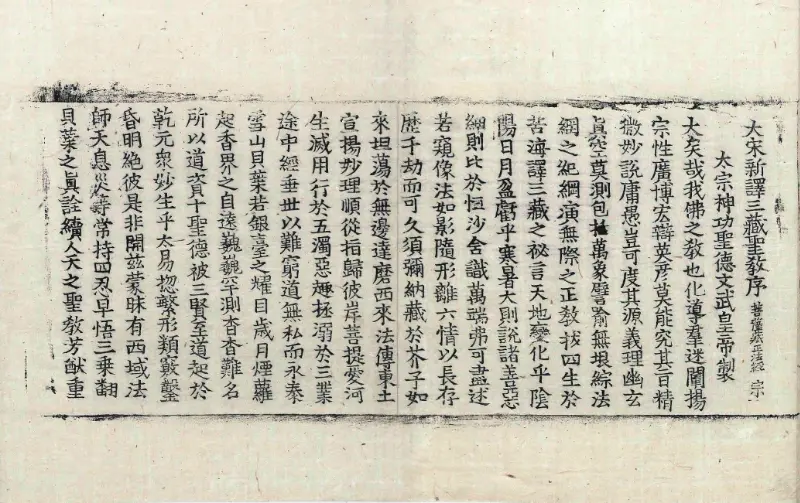 大宋新譯三藏聖教序 菩薩藏正法經 宗
太宗神功聖德文武皇帝製
大矣哉我佛之教也化導羣迷闡揚
宗性廣博宏辯英彥莫能究其旨精
微妙說庸愚豈可度其源義理幽玄
眞空莫測包括萬象譬喻無垠綜法
網之紀綱演無際之正教拔四生於
苦海譯三藏之祕言天地變化乎陰
陽日月盈虧乎寒暑大則說諸善惡
細則比於恒沙含識萬端弗可盡述
若窺像法如影隨形離六情以長存
歷千劫而可久須彌納藏於芥子如
來坦蕩於無邊達磨西來法傳東土
宣揚妙理順從指歸彼岸菩提愛河
生滅用行於五濁惡趣拯溺於三業
途中經垂世以難窮道無私而永泰
雪山貝葉若銀臺之耀目歲月煙蘿
起香界之自遠巍巍罕測杳杳難名
所以道資十聖德被三賢至道起於
乾元衆妙生乎太易惣繫形類竅鑿
昏明絕彼是非開茲蒙昧有西域法
師天息災等常持四忍早悟三乘翻
貝葉之眞詮續人天之聖教芳猷重